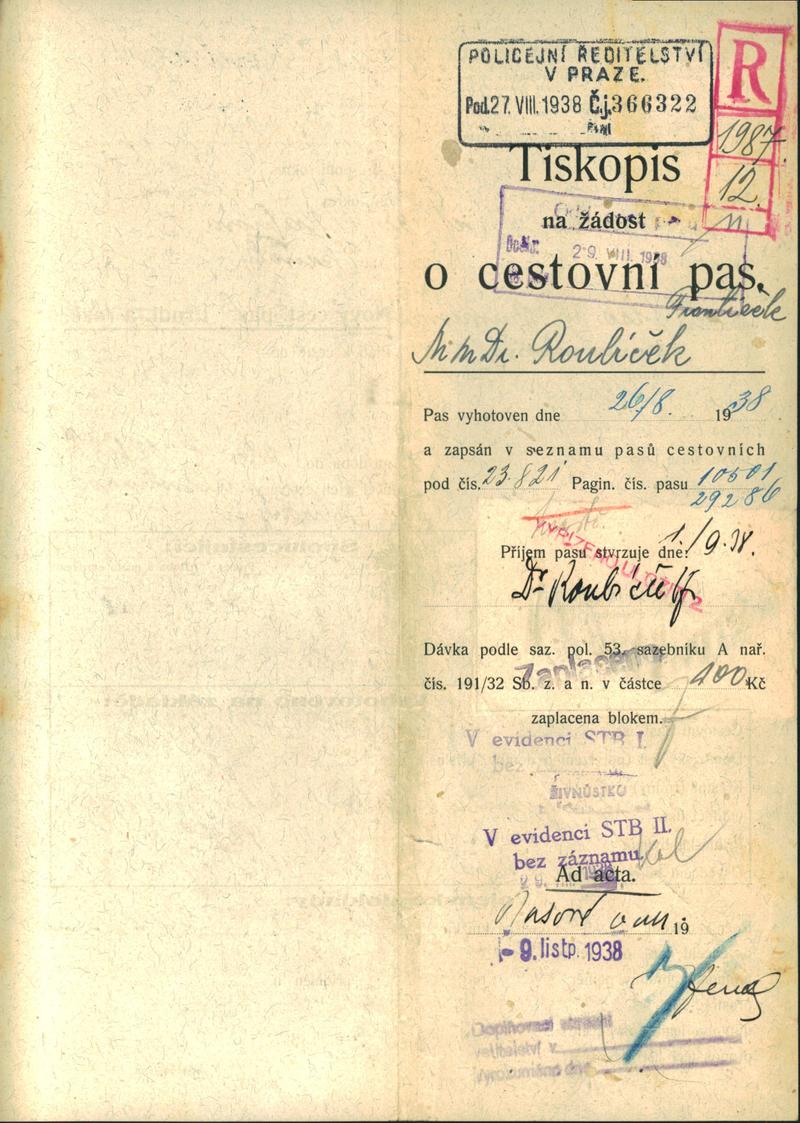 POLICEJNÍ ŘEDITELSTVÍ
V PRAZE.
Pod. 27. VIII. 1938 Č.j. 366322
R
1987
12.
Tiskopis
na žádost
29. VIII. 1938
o cestovní pas.
František
MUDr. Roubíček
Pas vyhotoven dne 26/8. 1938
a zapsán v seznamu pasů cestovních
pod čís. 23.821 Pagin. čís. pasu 10501
29286
Příjem pasu stvrzuje dne: 1./9.38.
Dr Roubíček
Dávka podle saz. pol. 53. sazebníku A nař.
Zaplaceno
čís. 191/32 Sb. z. a n. v částce 100 Kč
zaplacena blokem.
V evidenci STB I.
bez
ŽIVNŮSTKO
V evidenci STB II.
bez záznamu
Ad acta.
19
- 9. listp. 1938
Doplňovací
velitelství v